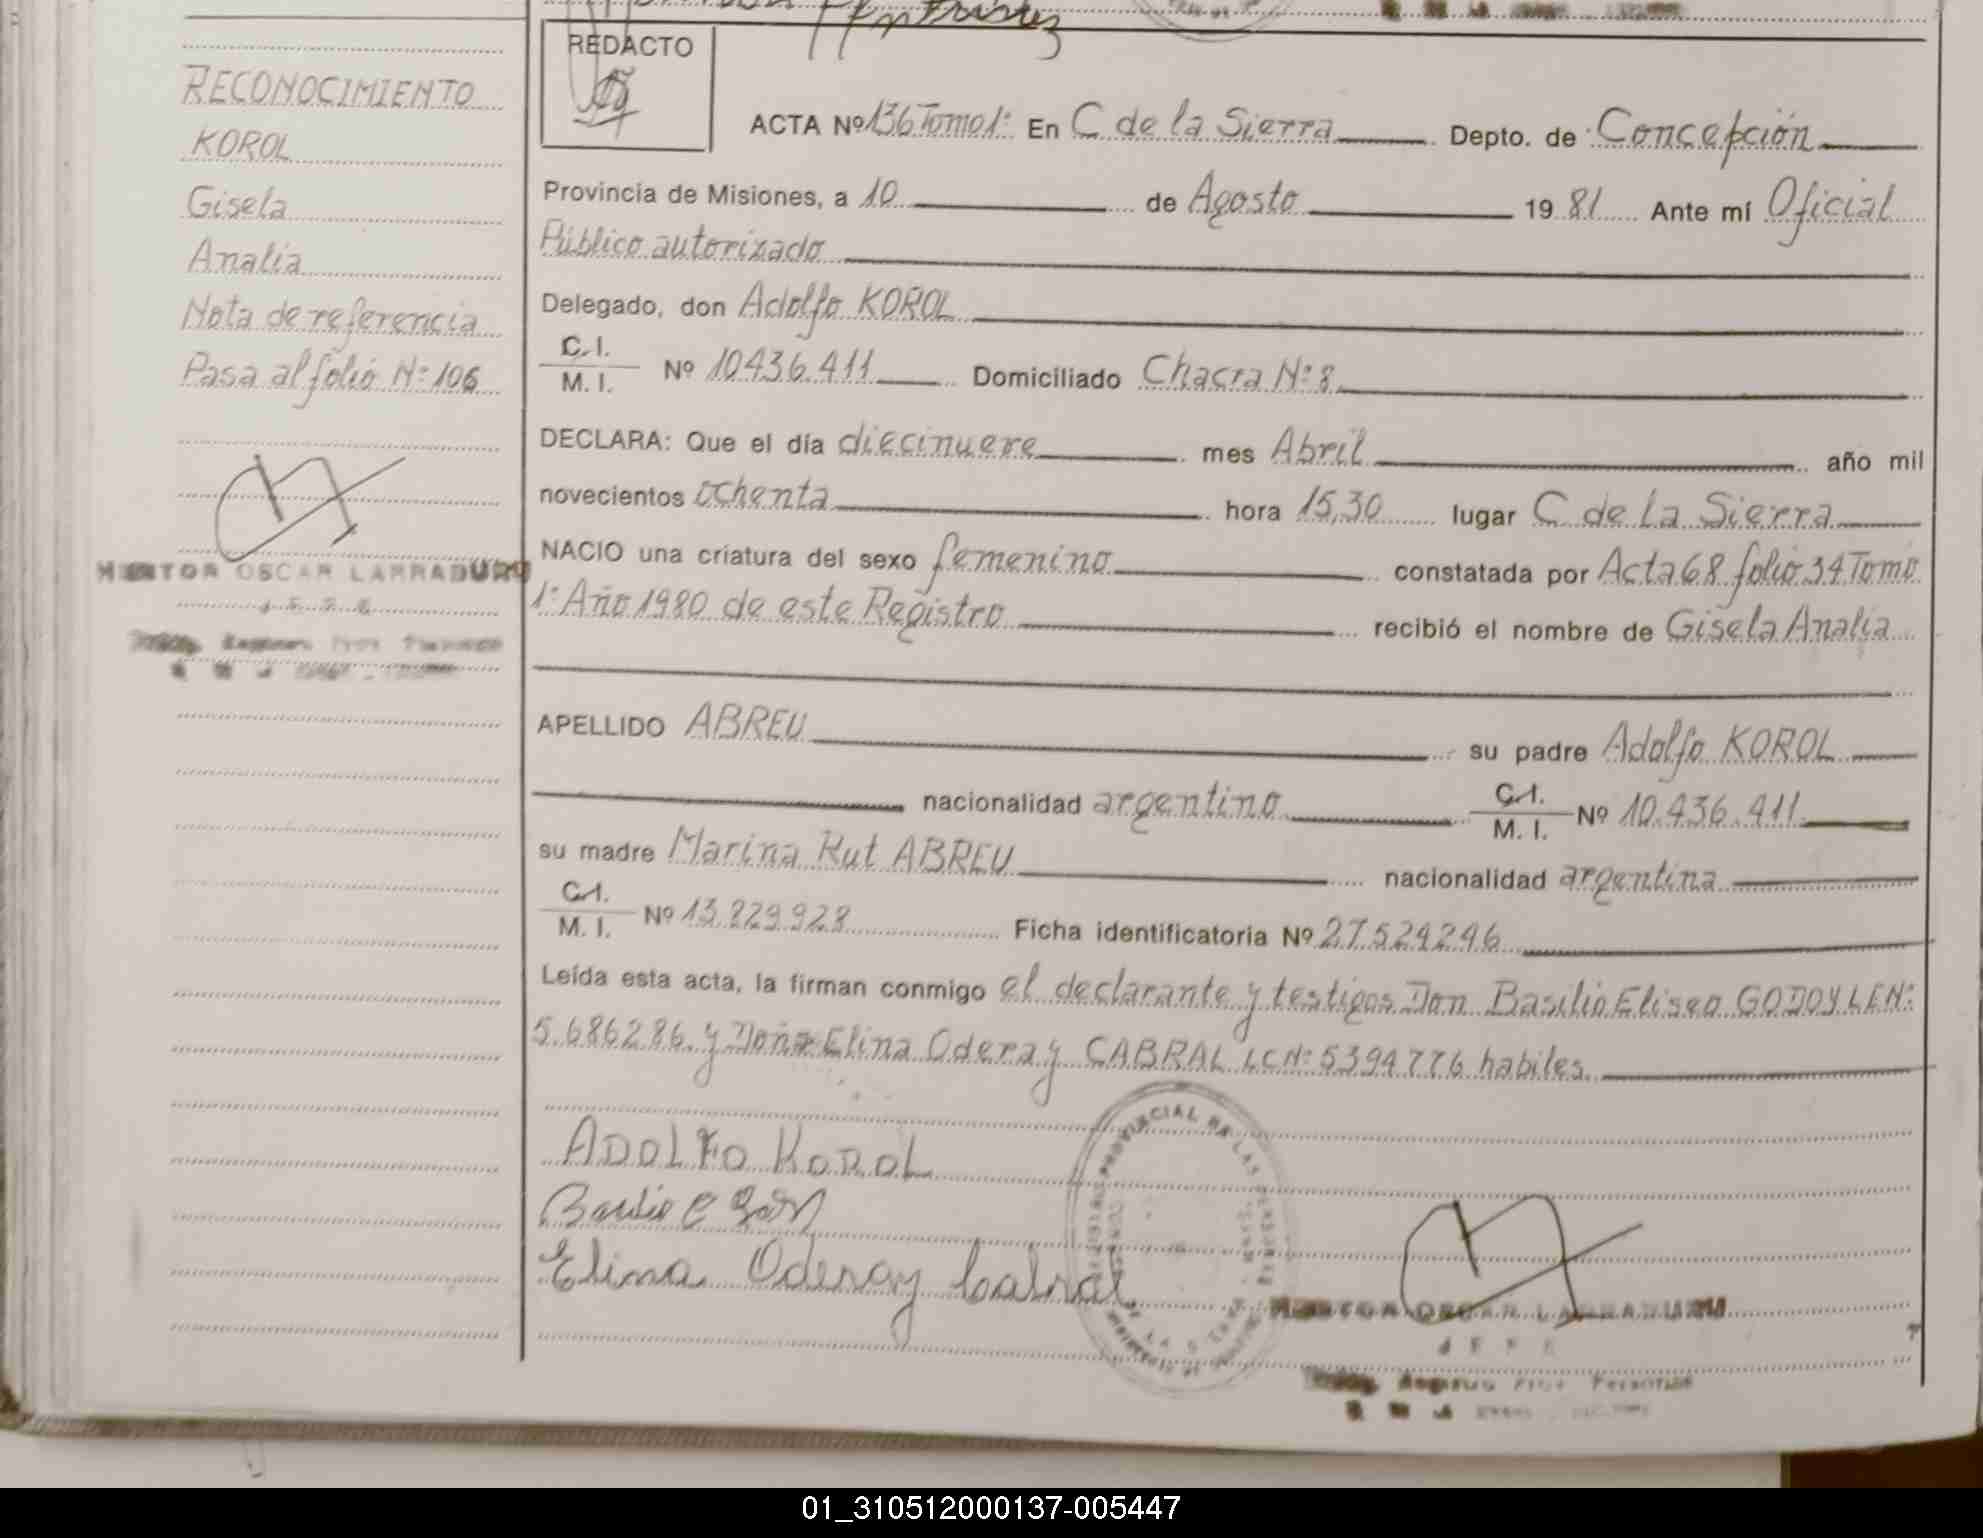 RECONOCIMIENTO
KOROL
Gisela
Analía
Nota de referencia
Pasa al folio Nº 106
OSCAR LARRABURU
JEFE
REDACTO
ACTA Nº 136 Tomo 1º En C de la Sierra Depto. de Concepción
Provincia de Misiones, a 10 de Agosto 1981 Ante mí Oficial
Público autorizado
Delegado, don Adolfo KOROL
C.I.
M.I. Nº 10436.411 Domiciliado Chacra Nº 8
DECLARA: Que el día diecinueve mes Abril año mil
novecientos ochenta hora 15,30 lugar C de La Sierra
NACIO una criatura del sexo femenino constatada por Acta 68 folio 34 Tomo
1º Año 1980 de este Registro recibió el nombre de Gisela Analía
APELLIDO ABREU su padre Adolfo KOROL
nacionalidad argentino C.I.
M.I. Nº 10.436.411
su madre Marina Rut ABREU nacionalidad argentina
C.I.
M.I. Nº 13.829.928 Ficha identificatoria Nº 27524246
Leída esta acta, la firman conmigo el declarante y testigos Don Basilio Eliseo GODOY LEN:
5.686286. y Doña Elina Oderay CABRAL LCN: 5394776 habiles.
ADOLFO KOROL
Elina Oderay Cabral
PROVINCIAL DE LAS PERSONAS
OSCAR LARRABURU
JEFE
01_310512000137-005447